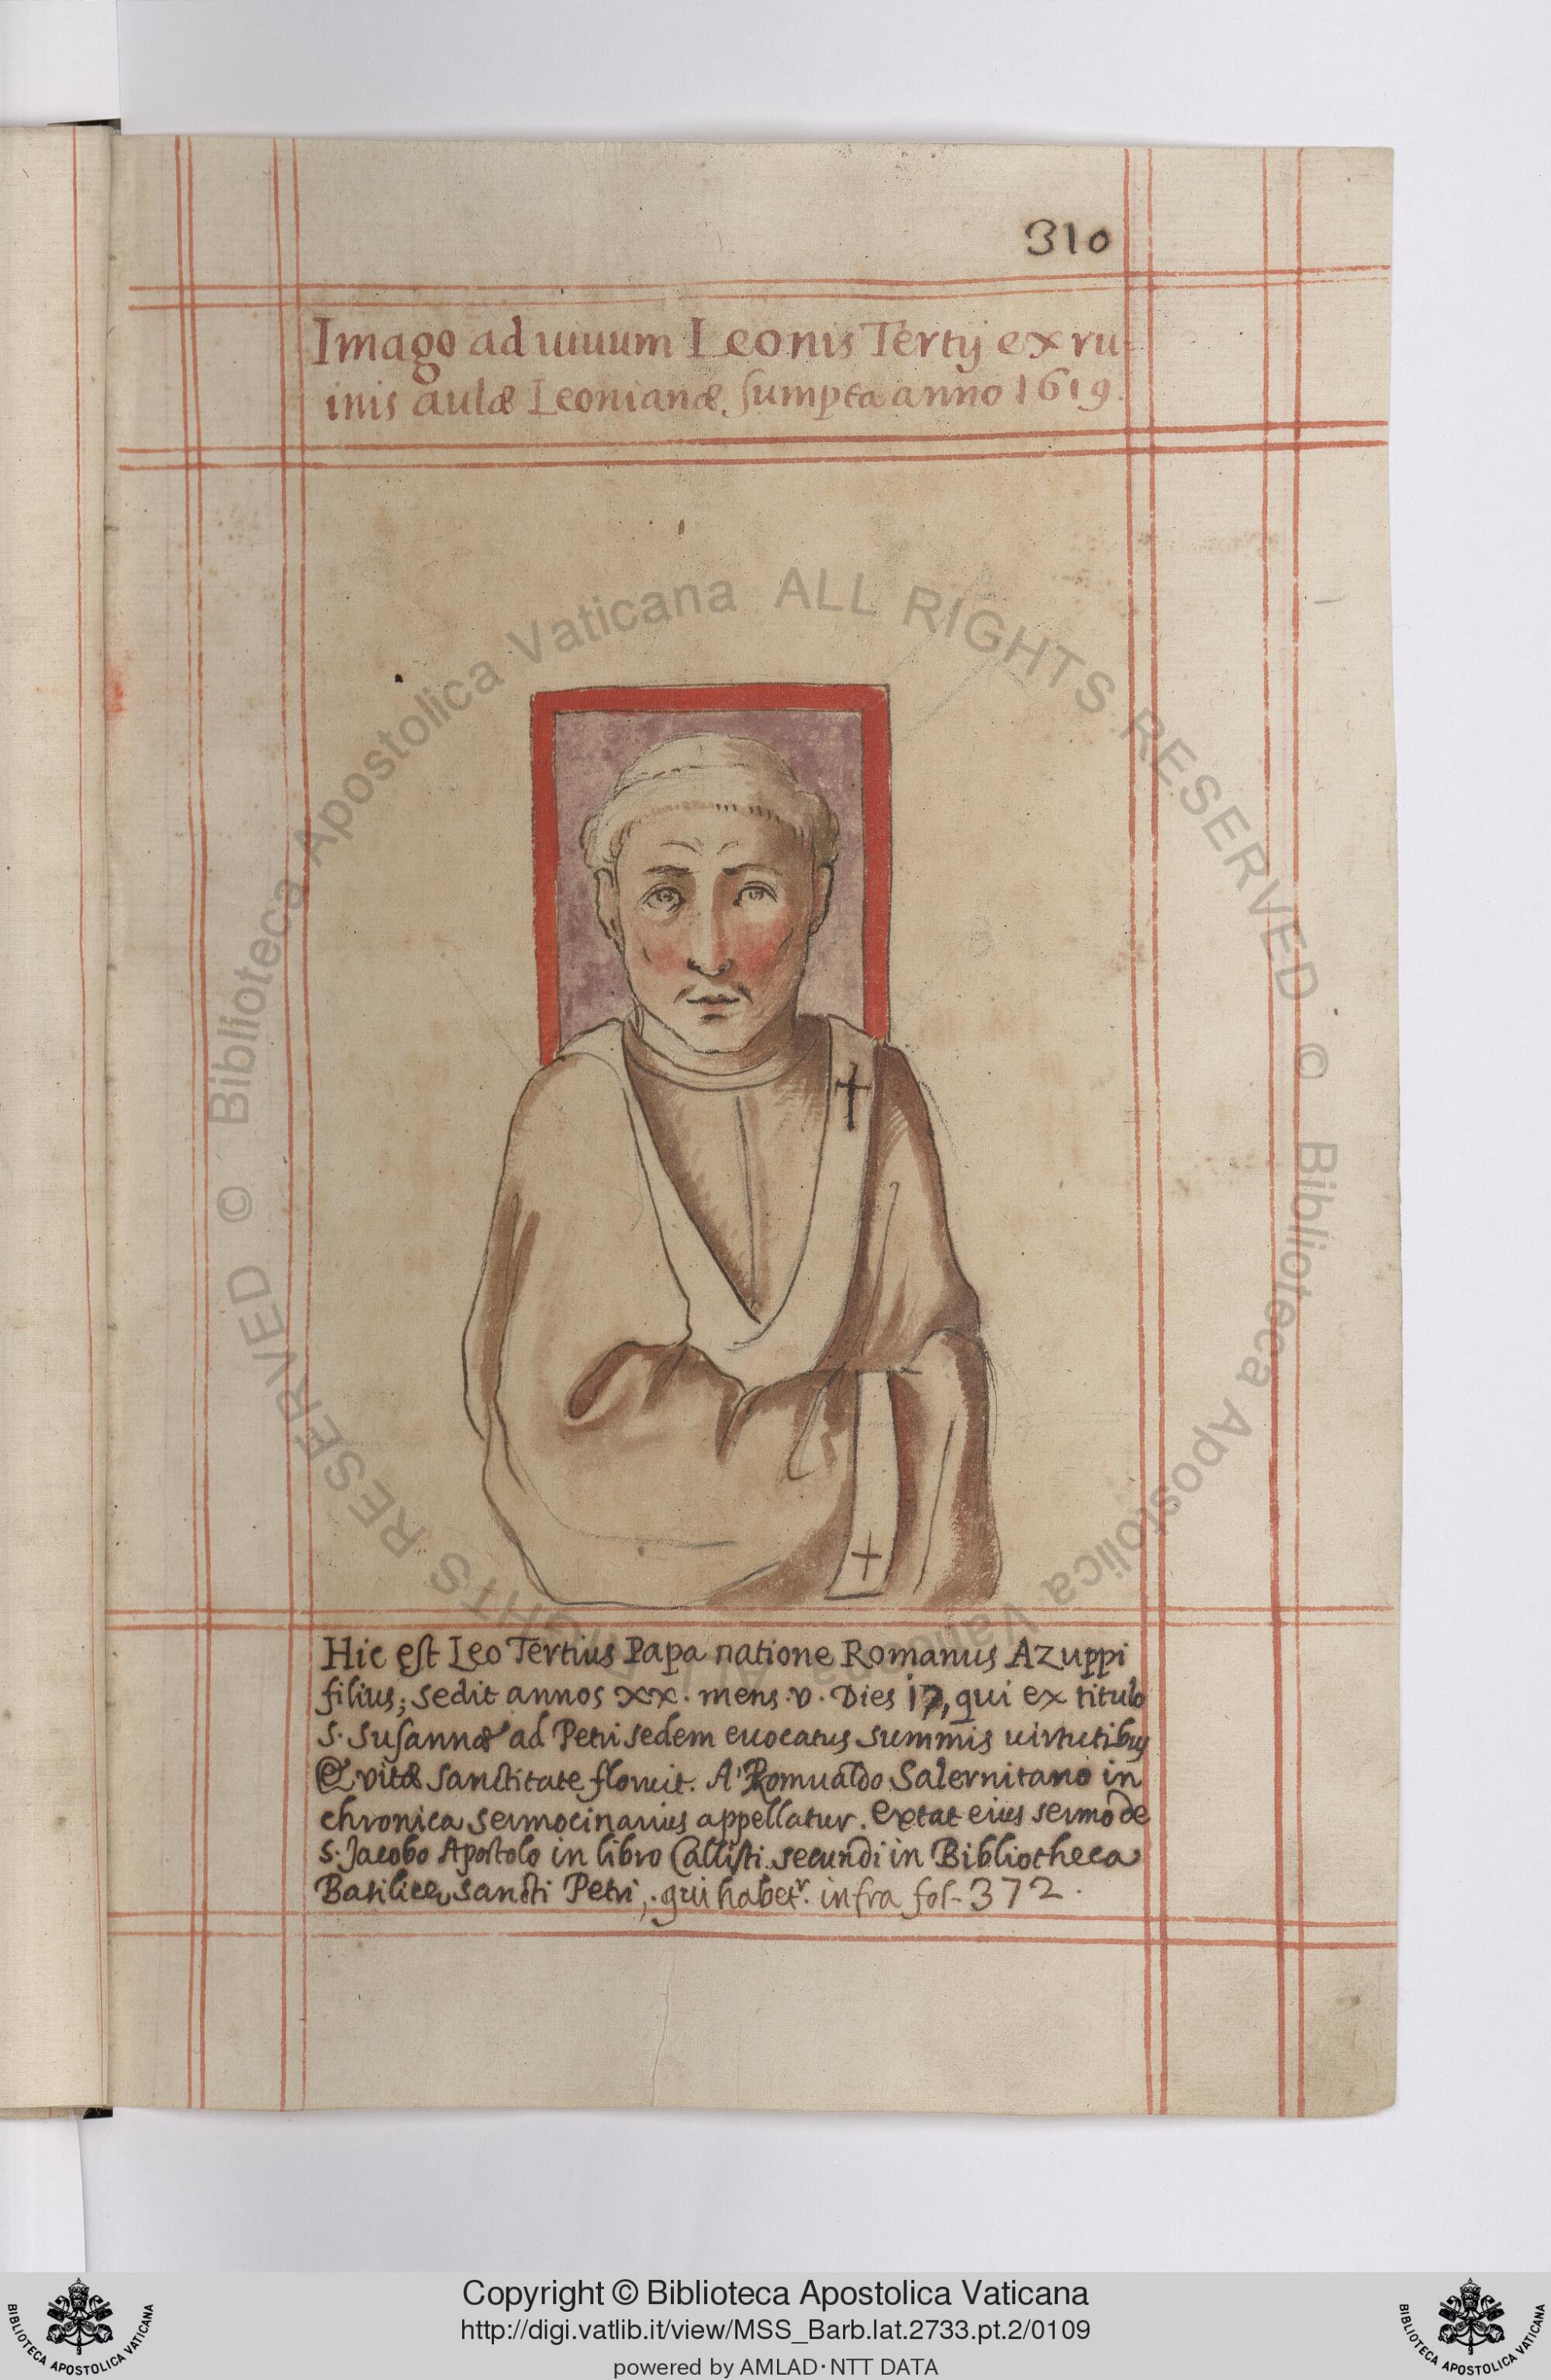 310
Imago ad uiuum Leonis Tertij ex ru-
inis aulæ Leonianæ, sumpta anno 1619.
Hic est Leo Tertius Papa natione Romanus Azuppi
filius; sedit annos XX. mens. v. Dies 17, qui ex titulo
S. Susannæ ad Petri sedem euocatus summis uirtutibus
& vitæ sanctitate floruit. A' Romualdo Salernitano in
chronica sermocinarius appellatur. Extat eius sermo de
S. Jacobo Apostolo in libro Callisti secundi in Bibliotheca
Basilicæ sancti Petri, qui habetr. infra fol. 372.
© Biblioteca Apostolica Vaticana ALL RIGHTS RESERVED
© Biblioteca Apostolica Vaticana ALL RIGHTS RESERVED
Copyright © Biblioteca Apostolica Vaticana
http://digi.vatlib.it/view/MSS_Barb.lat.2733.pt.2/0109
powered by AMLAD·NTT DATA
BIBLIOTECA APOSTOLICA VATICANA
BIBLIOTECA APOSTOLICA VATICANA